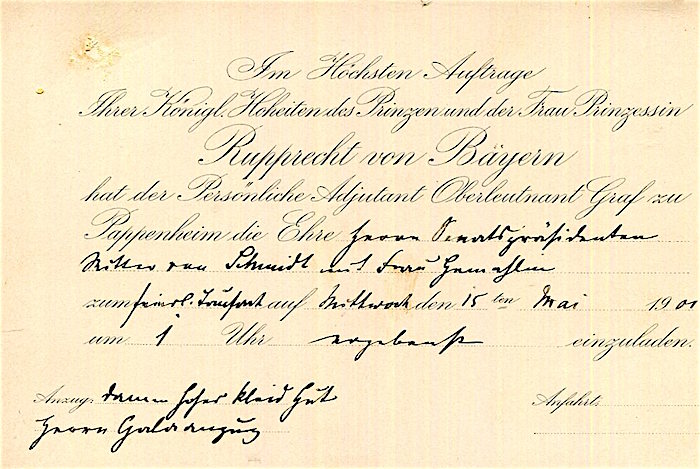 Im Höchsten Auftrage
Ihrer Königl. Hoheiten des Prinzen und der Frau Prinzessin
Rupprecht von Bayern
hat der Persönliche Adjutant Oberleutnant Graf zu
Pappenheim die Ehre Herrn Senatspräsidenten
Ritter von Schmidt mit Frau Gemahlin
zum feierl. auf Mittwoch den 15 ten Mai 1901
um 1 Uhr ergebenst einzuladen.
Anzug: Damen hohes Kleid Hut
Anfahrt:
Herrn Galaanzug